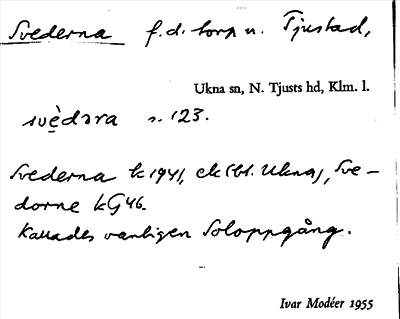 Svederna f.d. torp u. Tjustad,
Ukna sn, N. Tjusts hd, Klm. l.
svèdəra s. 123.
Svederna k 1941, ek (bl. Ukna), Sve-
dorne kG46.
Kallades vanligen Soloppgång.
Ivar Modéer 1955